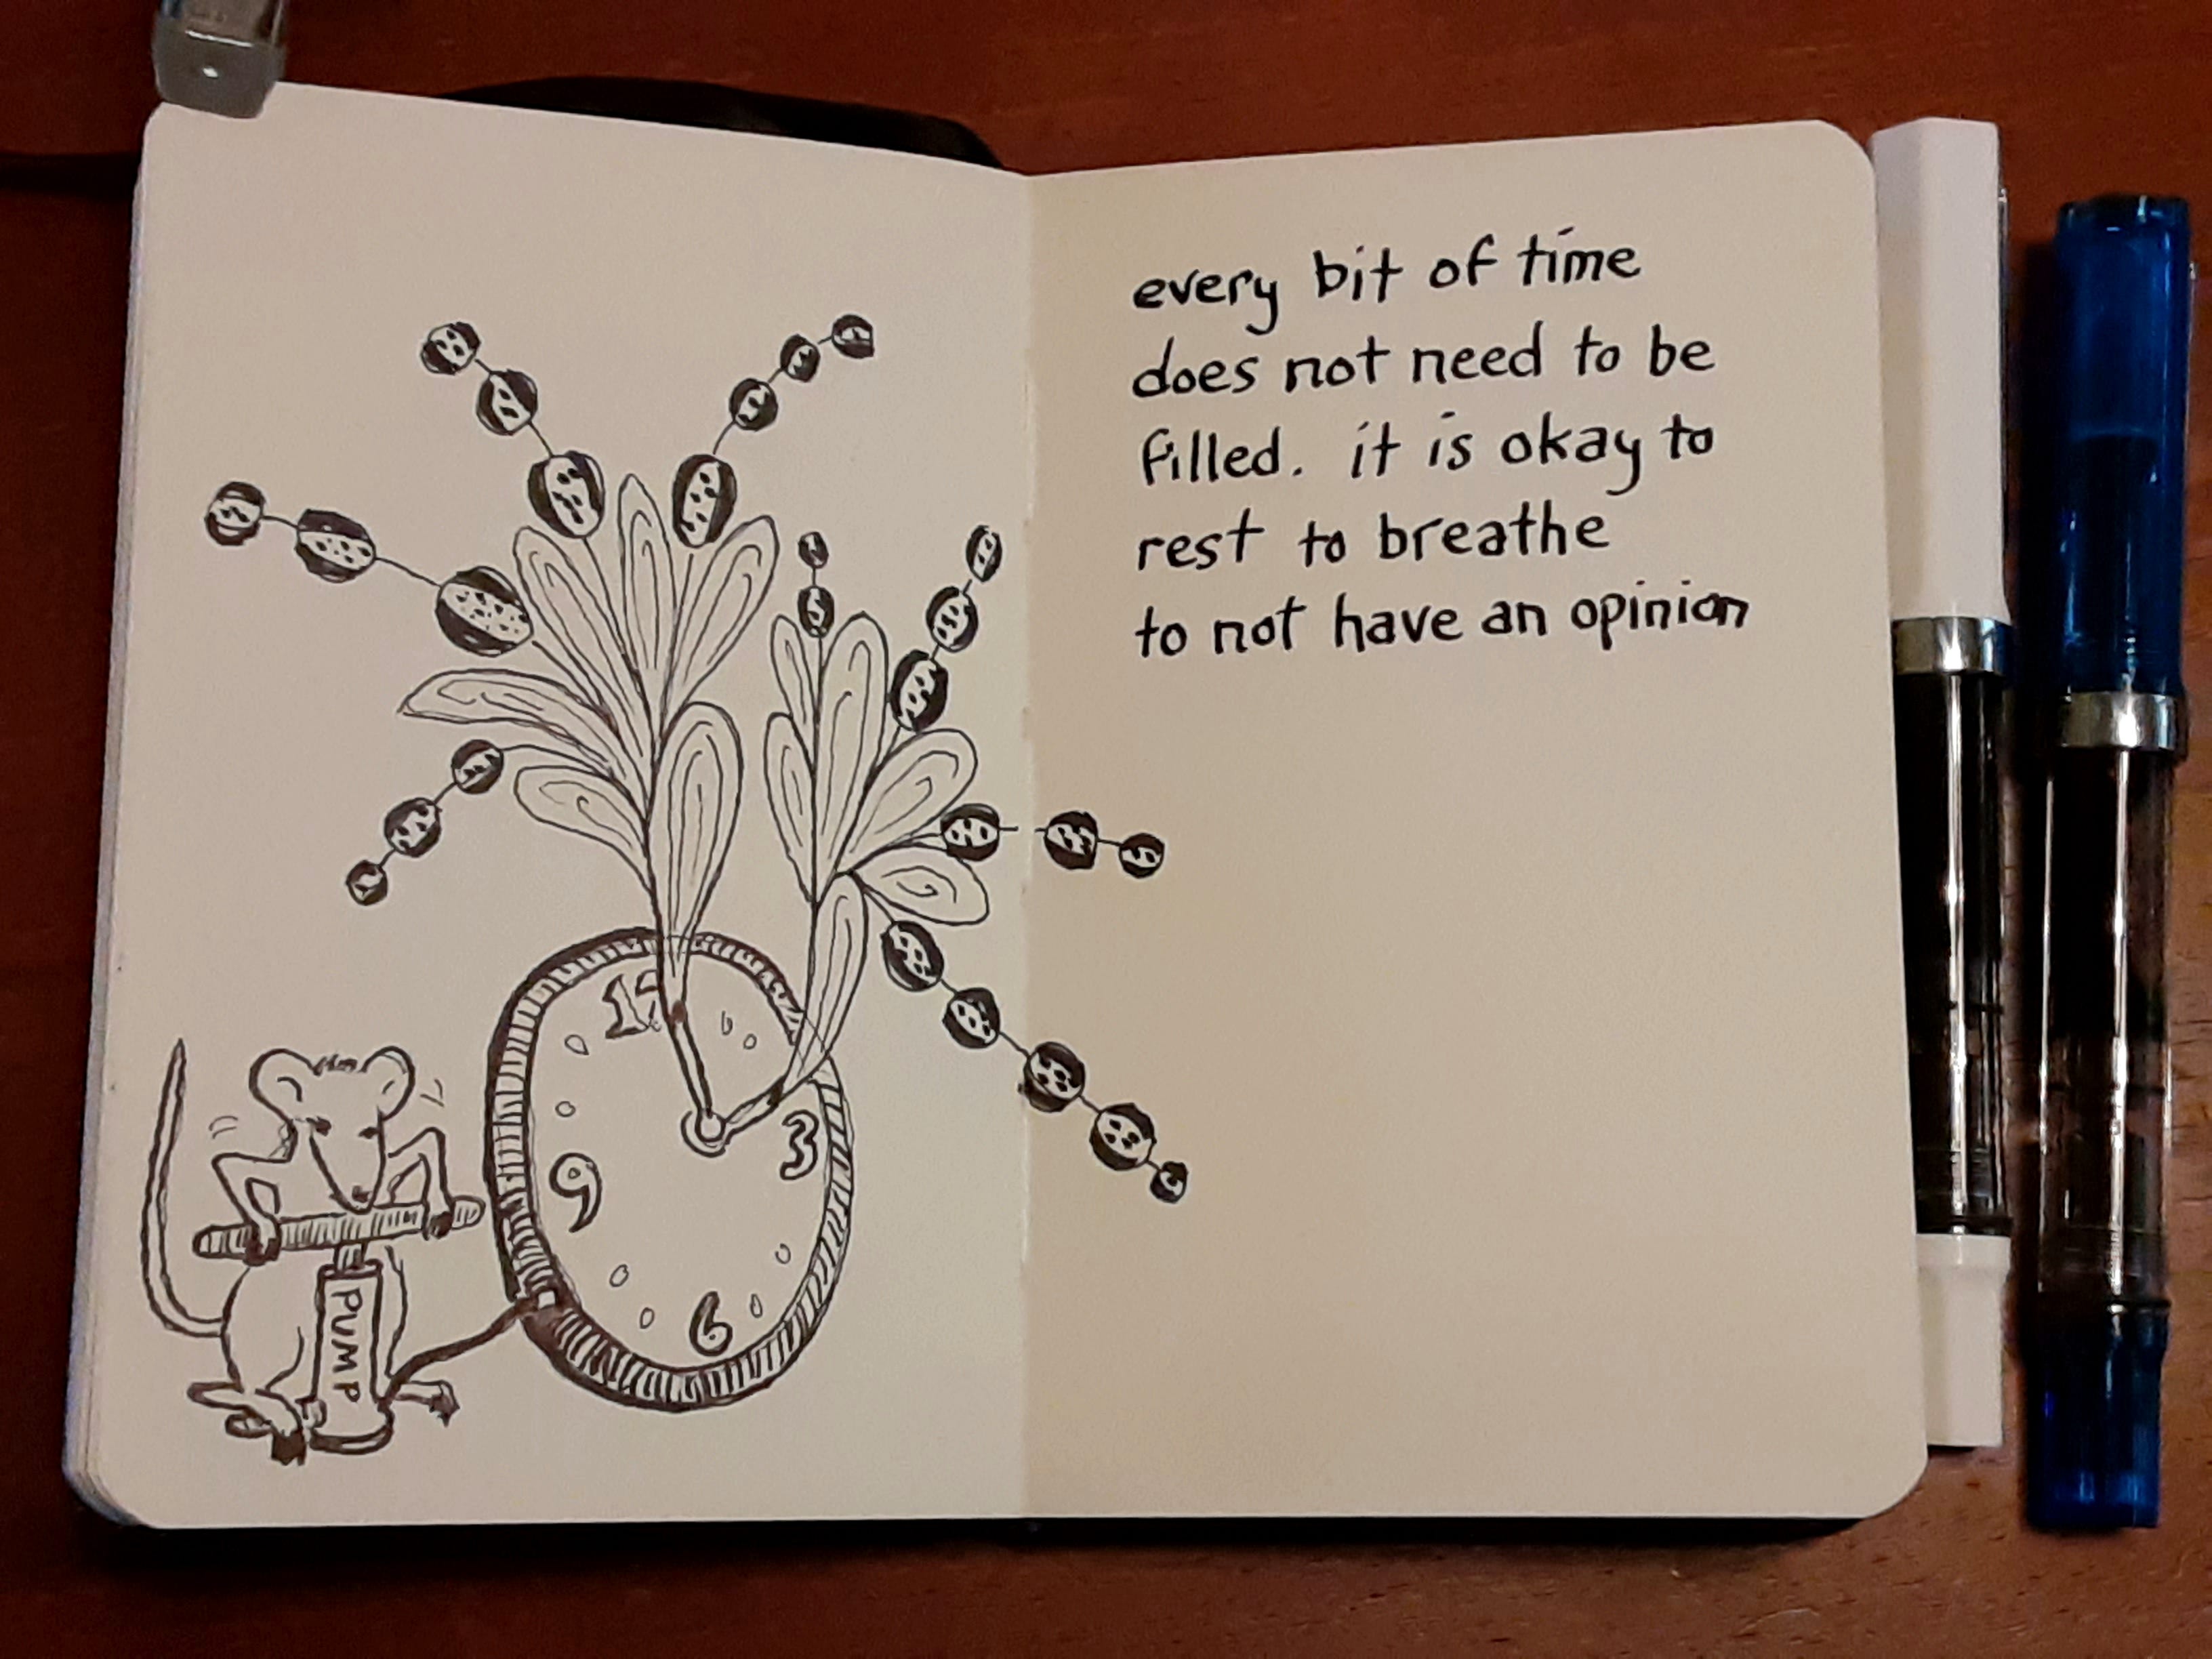 every bit of time
does not need to be
filled. it is okay to
rest to breathe
to not have an opinion
12
3
9
6
PUMP